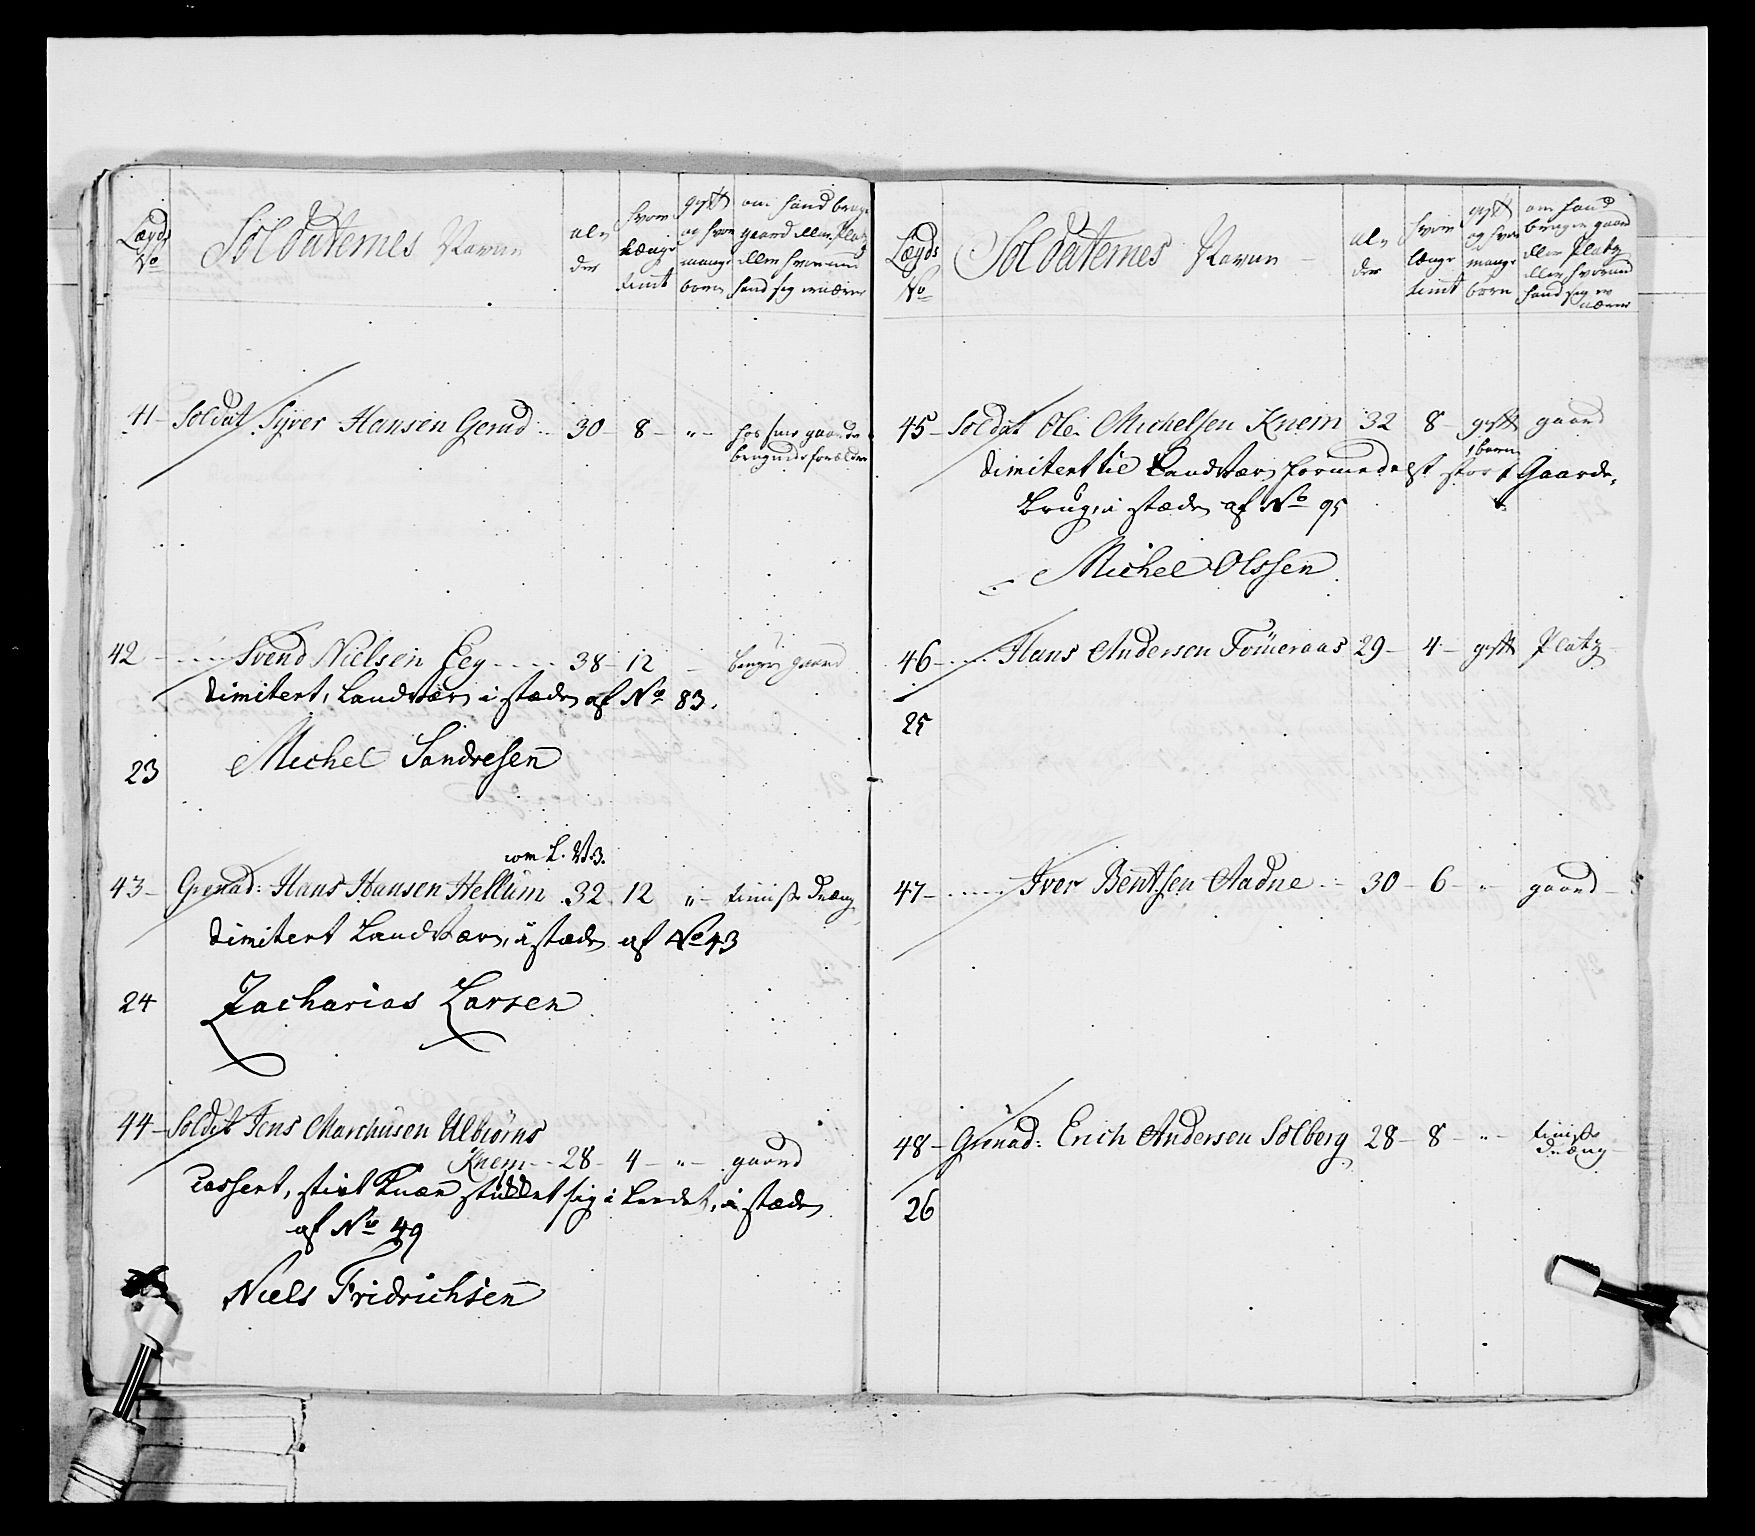 Lægds No
Soldaternes Navne
al-
der
hvor
længe
tient
gift
og hvor
mange
børn
om hand bruger
gaard eller Platz
eller hvormed
hand sig ernærer
41 - Soldat Syver Hansen Gerud 30 - 8 - " - hos sine gaard
brugende forældre
42 - Svend Nielsen Eeg 38 - 12 - bruger gaard
dimitert, Landværn i stæden af No 83.
23 Michel Sandresen
com L. V. 3.
43 - Grenad: Hans Hansen Hellum 32 12 " - tieniste dræng
dimitert Landværn, i stæden af No 43
24 Zacharias Larsen
44 - Soldat Jens Marchusen Ulbiørns
Knem - 28 - 4 - " - gaard
Cassert, stivt Knæe sig i i stæden
af No 49
Niels Fridrichsen
Lægds
No
Soldaternes Navne
al-
der
hvor
længe
tient
gift
og hvor
mange
børn
om hand
bruger gaard
eller Platz
eller hvormed
hand sig er
nærer
45 - Soldat Ole Michelsen Knem 32 8 - gift gaard
1 barn
dimitert til Landværn formedelst stor Gaards
brug, i stæden af No 95
Michel Olssen
46 - Hans Andersen Fomeraas 29 - 4 - gift Platz
25
47 - Iver Bentsen Aadne - 30 - 6 - " - gaard
48 - Grenad: Erich Andersen Solberg 28 - 8 - " - tieniste
dræng
26